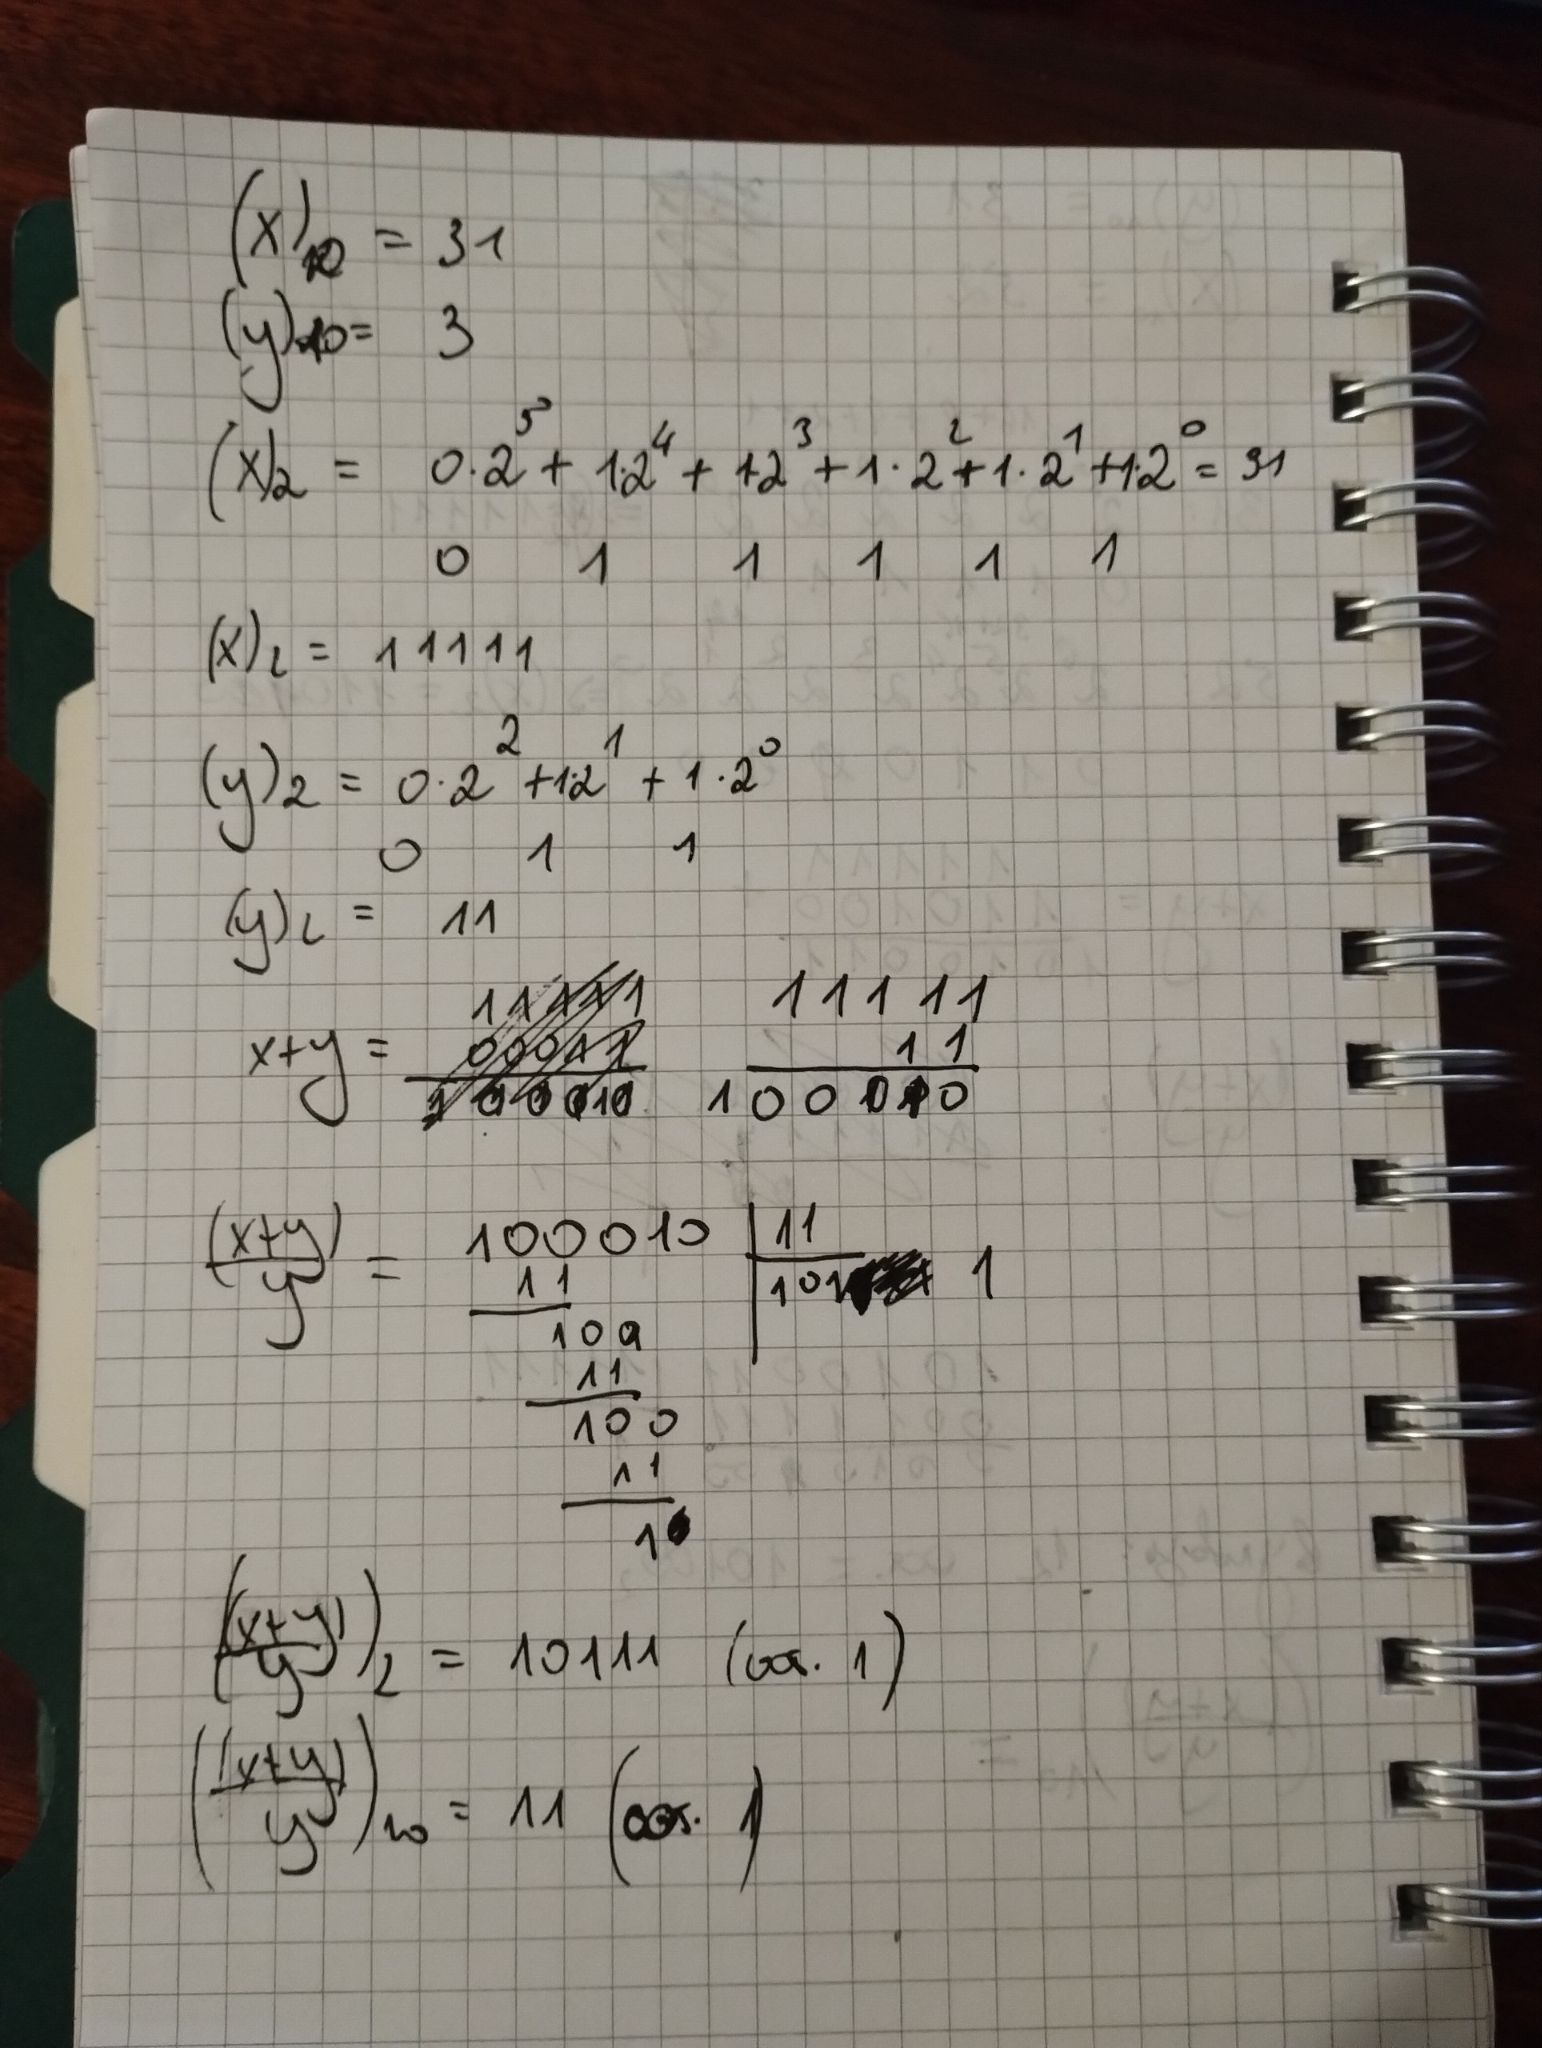 (x)10 = 31
(y)10 = 3
(x)2 = 0·2^5 + 1·2^4 + 12^3 + 1·2^2 + 1·2^1 + 1·2^0 = 31
0 1 1 1 1 1
(x)2 = 11111
(y)2 = 0·2^2 + 1·2^1 + 1·2^0
0 1 1
(y)2 = 11
11111 11111
x+y = 00011 11
100010 100010
(x+y)/y = 100010 | 11
11 101 1
100
11
100
11
10
((x+y)/y)2 = 10111 (ост. 1)
((x+y)/y)10 = 11 (ост. 1)